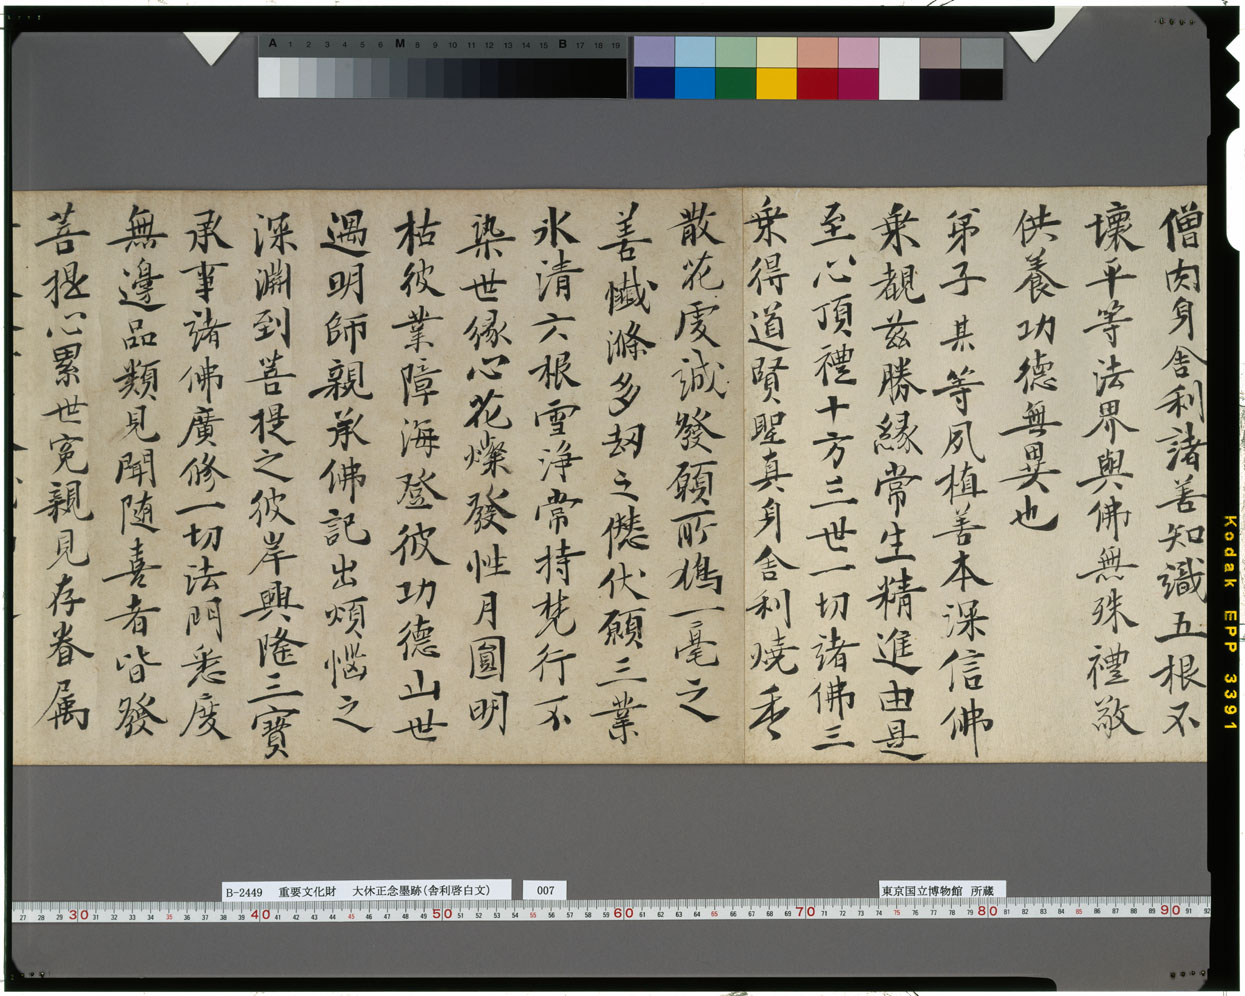 僧肉身舍利諸善知識五根不
壞平等法界與佛無殊禮敬
供養功德無異也
弟子某等夙植善本深信佛
乘覩茲勝緣常生精進由是
至心頂禮十方三世一切諸佛三
乘得道賢聖真身舍利燒香
散花虔誠發願所獲一毫之
善懺滌多劫之愆伏願三業
氷清六根雪淨常持梵行不
染世緣心花燦發性月圓明
枯彼業障海登彼功德山世
遇明師親承佛記出煩惱之
深淵到菩提之彼岸興隆三寶
承事諸佛廣修一切法門悉度
無邊品類見聞随喜者皆發
菩提心累世冤親見存眷属
A 1 2 3 4 5 6 M 8 9 10 11 12 13 14 15 B 17 18 19
Kodak EPP 3391
B-2449 重要文化財 大休正念墨跡(舎利啓白文)
007
東京国立博物館 所蔵
27 28 29 30 31 32 33 34 35 36 37 38 39 40 41 42 43 44 45 46 47 48 49 50 51 52 53 54 55 56 57 58 59 60 61 62 63 64 65 66 67 68 69 70 71 72 73 74 75 76 77 78 79 80 81 82 83 84 85 86 87 88 89 90 91 92